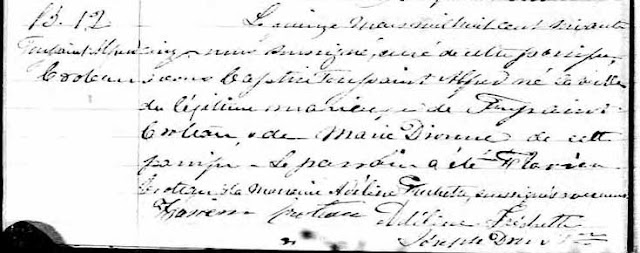 B. 12
Toussaint Alfred
Croteau
Le quinze mars mil huit cent soixante
cinq, nous soussigné, curé de cette paroisse,
avons baptisé Toussaint Alfred né la veille
du légitime mariage de Toussaint
Croteau, & de Marie Dionne de cette
paroisse. Le parrain a été Flavien
Croteau & la marraine Adéline Frechette, soussignés avec nous
Flavien Croteau Adéline Fréchette
Joseph